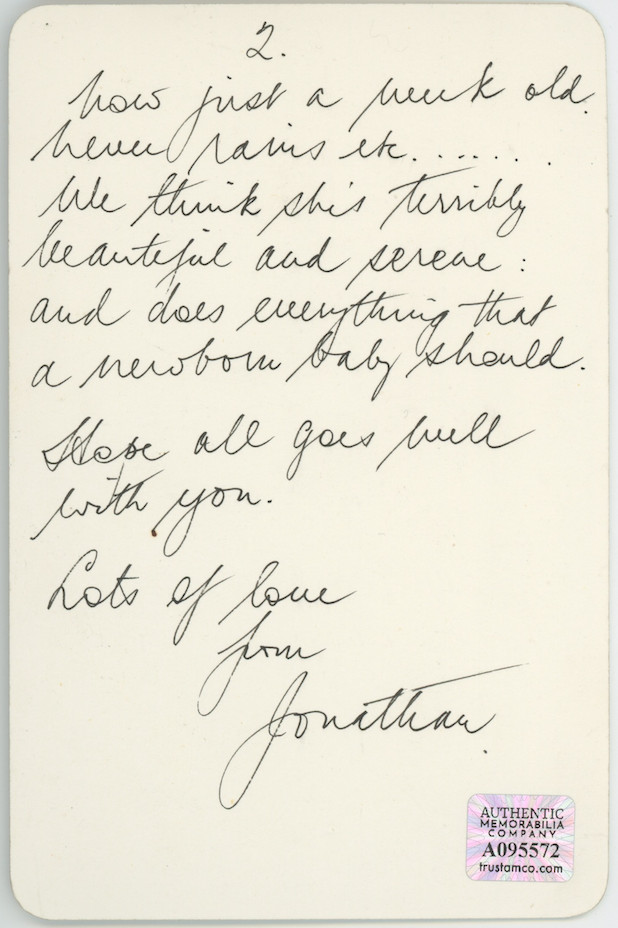 2.
now just a week old.
Never rains etc.......
We think she's terribly
beautiful and serene :
and does everything that
a newborn baby should.
Hope all goes well
with you.
Lots of love
from
Jonathan.
AUTHENTIC
MEMORABILIA
COMPANY
A095572
trustamco.com